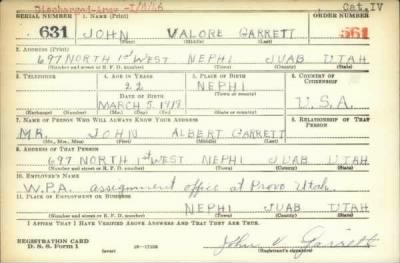 Discharged-Army - 1/8/46 Cat. IV
SERIAL NUMBER 1. NAME (Print) ORDER NUMBER
631 JOHN VALORE GARRETT 561
(First) (Middle) (Last)
2. ADDRESS (Print)
697 NORTH 1st WEST NEPHI JUAB UTAH
(Number and street or R. F. D. number) (Town) (County) (State)
3. TELEPHONE 4. AGE IN YEARS 5. PLACE OF BIRTH 6. COUNTRY OF CITIZENSHIP
22 NEPHI
DATE OF BIRTH (Town or county)
MARCH 5, 1918 U.S.A.
(Exchange) (Number) (Mo.) (Day) (Yr.) (State or country)
7. NAME OF PERSON WHO WILL ALWAYS KNOW YOUR ADDRESS 8. RELATIONSHIP OF THAT PERSON
MR. JOHN ALBERT GARRETT
(Mr., Mrs., Miss) (First) (Middle) (Last)
9. ADDRESS OF THAT PERSON
697 NORTH 1st WEST NEPHI JUAB UTAH
(Number and street or R. F. D. number) (Town) (County) (State)
10. EMPLOYER'S NAME
W.P.A. assignment office at Provo Utah.
11. PLACE OF EMPLOYMENT OR BUSINESS
NEPHI JUAB UTAH
(Number and street or R. F. D. number) (Town) (County) (State)
I AFFIRM THAT I HAVE VERIFIED ABOVE ANSWERS AND THAT THEY ARE TRUE.
REGISTRATION CARD
D. S. S. Form 1 (over) John V. Garrett
(Registrant's signature)